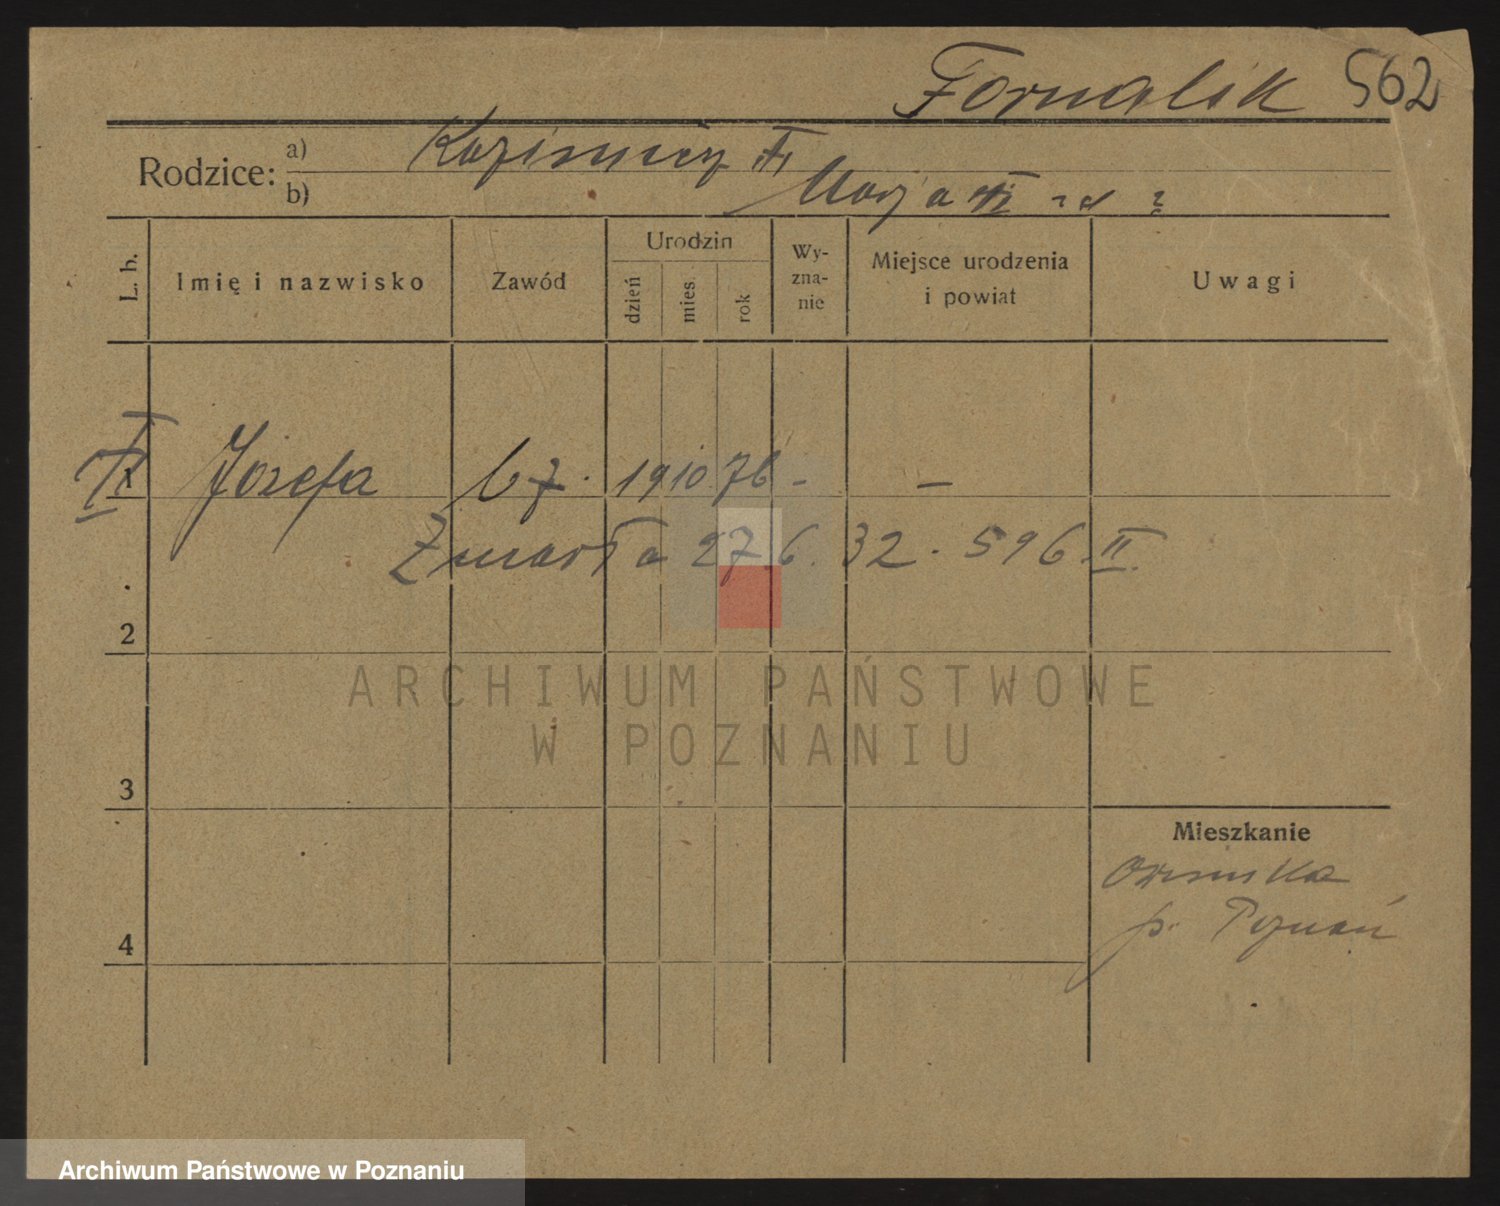 Fornalik 562
Rodzice: a) Kazimierz F.
b) Marja
L. b. Imię i nazwisko Zawód Urodzin dzień mies. rok Wy-zna-nie Miejsce urodzenia i powiat Uwagi
1 Józefa bz. 19 10 76 - -
Zmarła 27 6. 32. 596 II.
2
ARCHIWUM PAŃSTWOWE
W POZNANIU
3
Mieszkanie
p. Poznań
4
Archiwum Państwowe w Poznaniu